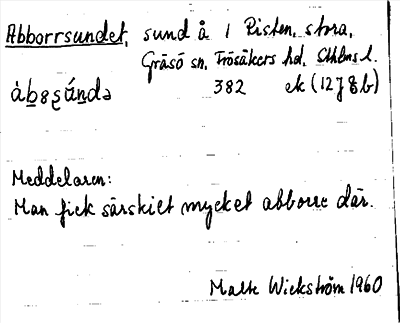 Abborrsundet, sund å / Risten, stora,
Gräsö sn, Frösåkers hd, Sthlms l.
382 ek (12J 8b)
Meddelaren:
Man fick särskilt mycket abborre där.
Malte Wickström 1960